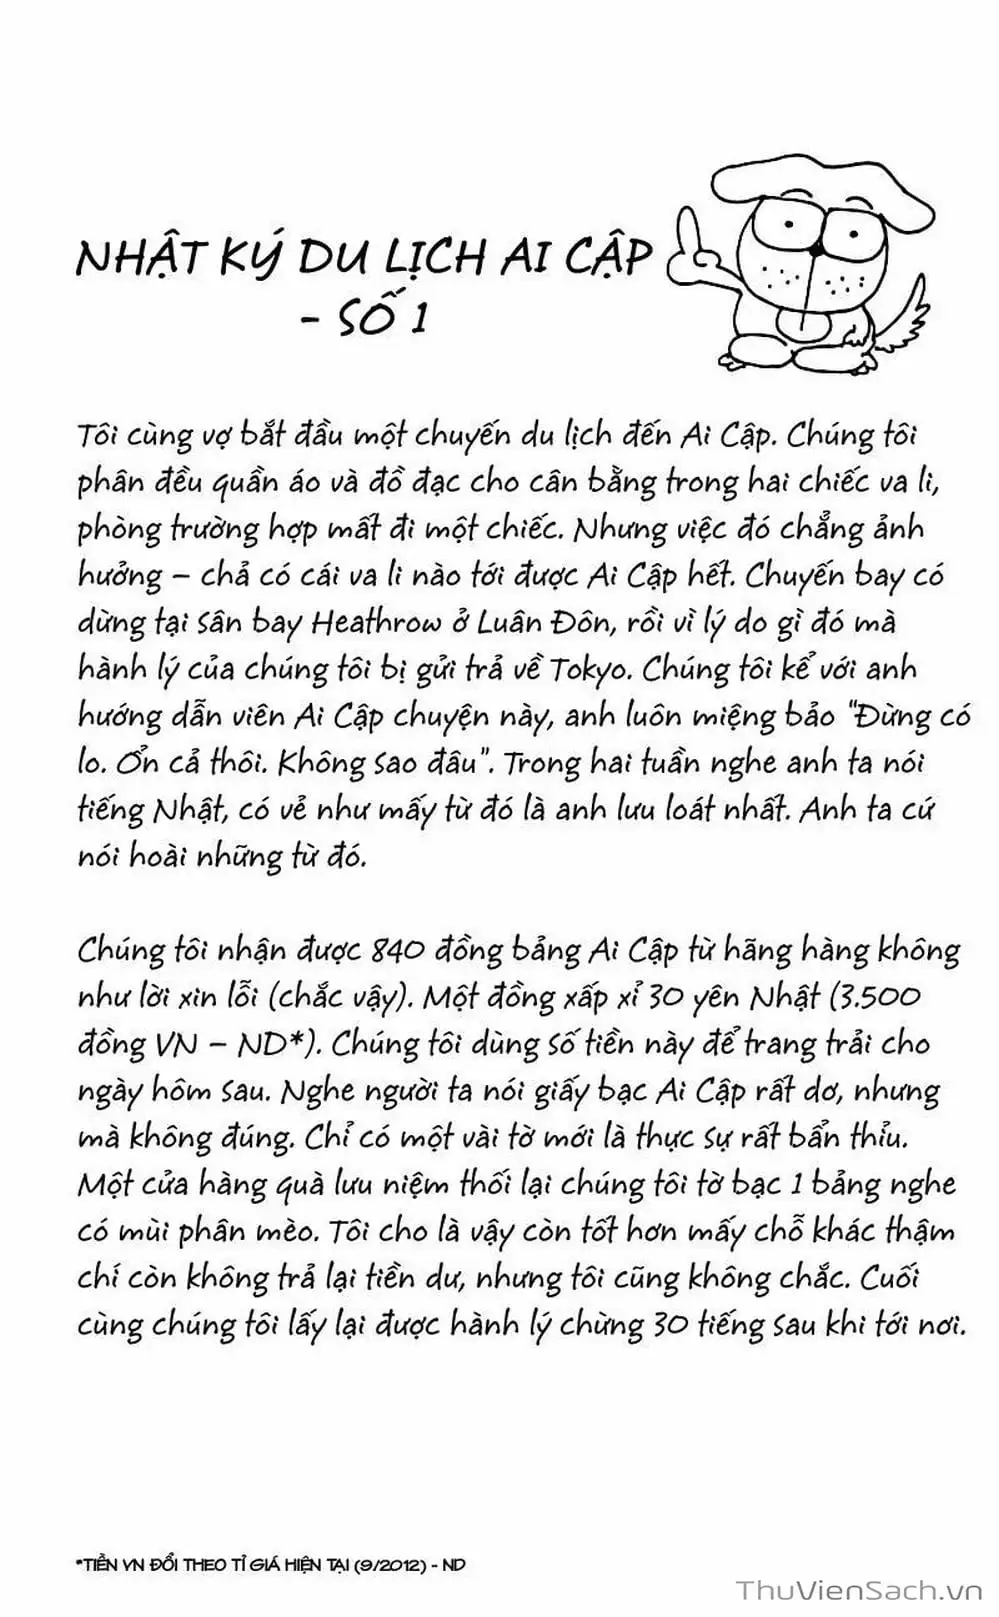 NHẬT KÝ DU LỊCH AI CẬP
- SỐ 1
Tôi cùng vợ bắt đầu một chuyến du lịch đến Ai Cập. Chúng tôi
phân đều quần áo và đồ đạc cho cân bằng trong hai chiếc va li,
phòng trường hợp mất đi một chiếc. Nhưng việc đó chẳng ảnh
hưởng – chả có cái va li nào tới được Ai Cập hết. Chuyến bay có
dừng tại sân bay Heathrow ở Luân Đôn, rồi vì lý do gì đó mà
hành lý của chúng tôi bị gửi trả về Tokyo. Chúng tôi kể với anh
hướng dẫn viên Ai Cập chuyện này, anh luôn miệng bảo "Đừng có
lo. Ổn cả thôi. Không sao đâu". Trong hai tuần nghe anh ta nói
tiếng Nhật, có vẻ như mấy từ đó là anh lưu loát nhất. Anh ta cứ
nói hoài những từ đó.
Chúng tôi nhận được 840 đồng bảng Ai Cập từ hãng hàng không
như lời xin lỗi (chắc vậy). Một đồng xấp xỉ 30 yên Nhật (3.500
đồng VN – ND*). Chúng tôi dùng số tiền này để trang trải cho
ngày hôm sau. Nghe người ta nói giấy bạc Ai Cập rất dơ, nhưng
mà không đúng. Chỉ có một vài tờ mới là thực sự rất bẩn thỉu.
Một cửa hàng quà lưu niệm thối lại chúng tôi tờ bạc 1 bảng nghe
có mùi phân mèo. Tôi cho là vậy còn tốt hơn mấy chỗ khác thậm
chí còn không trả lại tiền dư, nhưng tôi cũng không chắc. Cuối
cùng chúng tôi lấy lại được hành lý chừng 30 tiếng sau khi tới nơi.
*TIỀN VN ĐỔI THEO TỈ GIÁ HIỆN TẠI (9/2012) - ND
ThuVienSach.vn